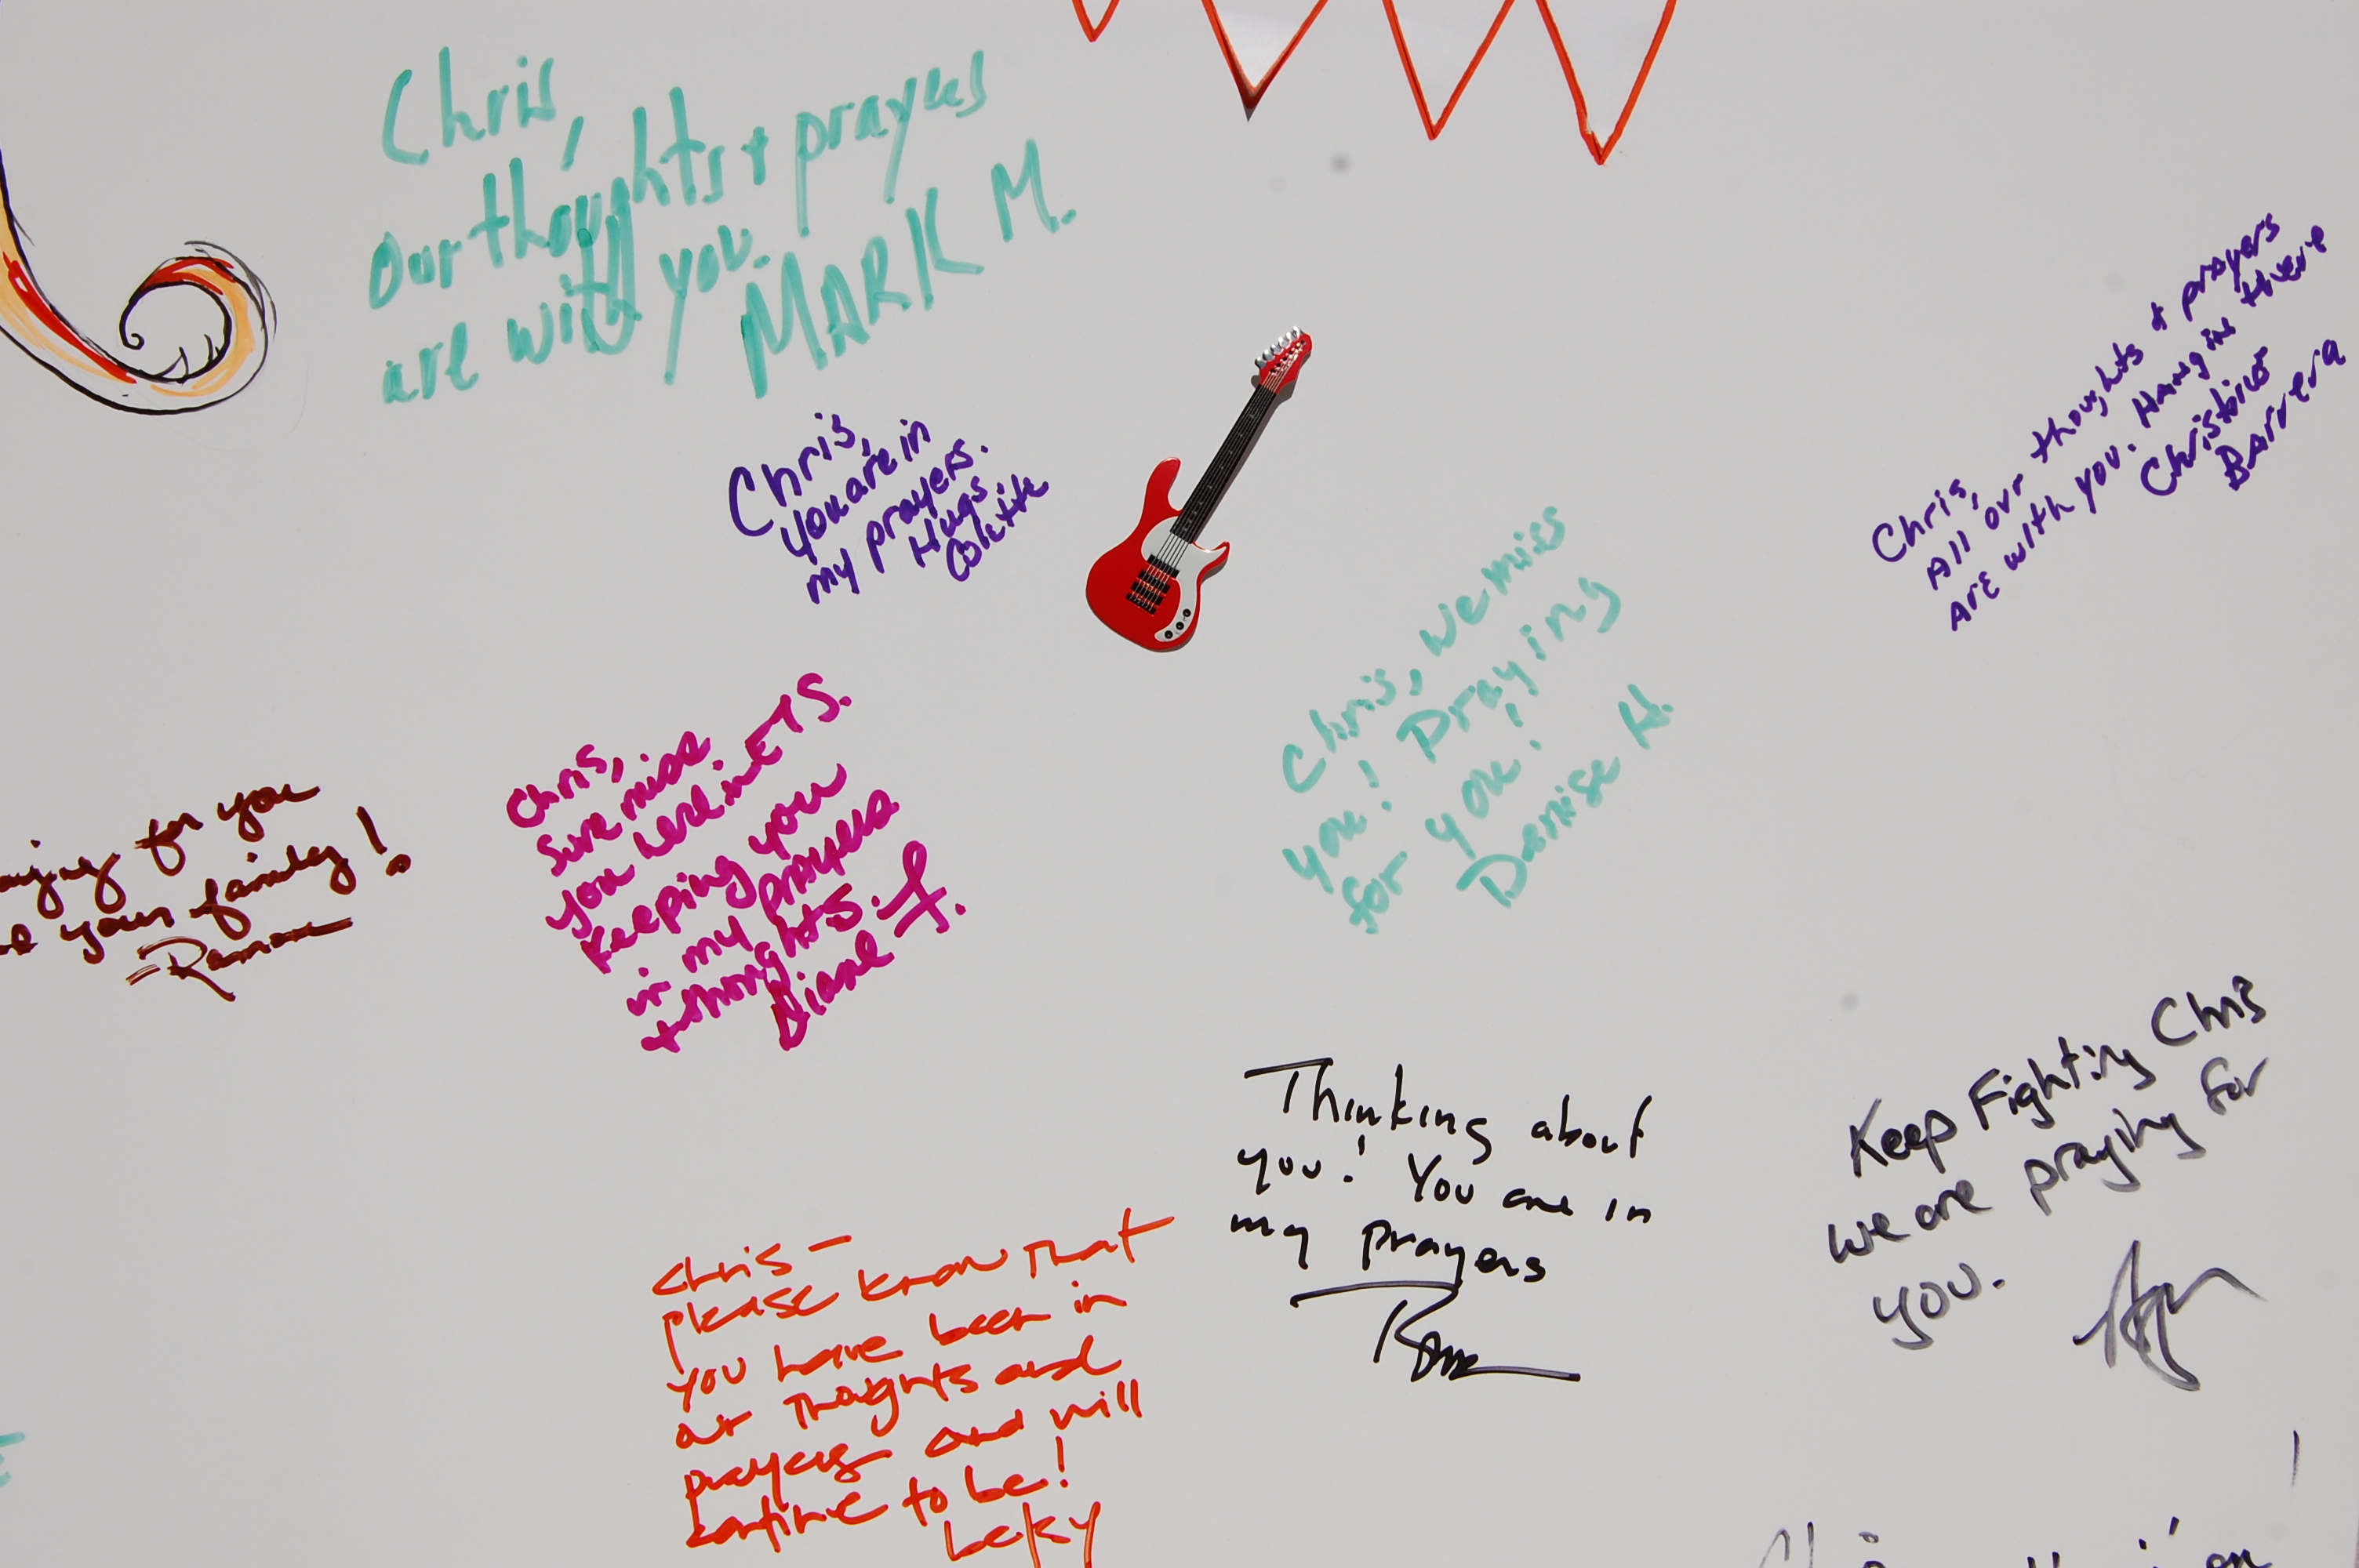 Chris,
Our thoughts + prayers
are with you.
MARK M.
Chris,
You are in
my prayers.
Hugs
Colette
Chris,
All our thoughts & prayers
Are with you. Hang in there
Christina
Barrera
Chris, we miss
you! Praying
for you!
Denise H.
Chris,
Sure miss
you here in ETS.
Keeping you
in my prayers
thoughts.
Diane F.
for you
your family!
Keep Fighting Chris
we are praying for
you.
Thinking about
you! You are in
my prayers
Chris —
Please know that
you have been in
our thoughts and
prayers and will
continue to be!
Becky